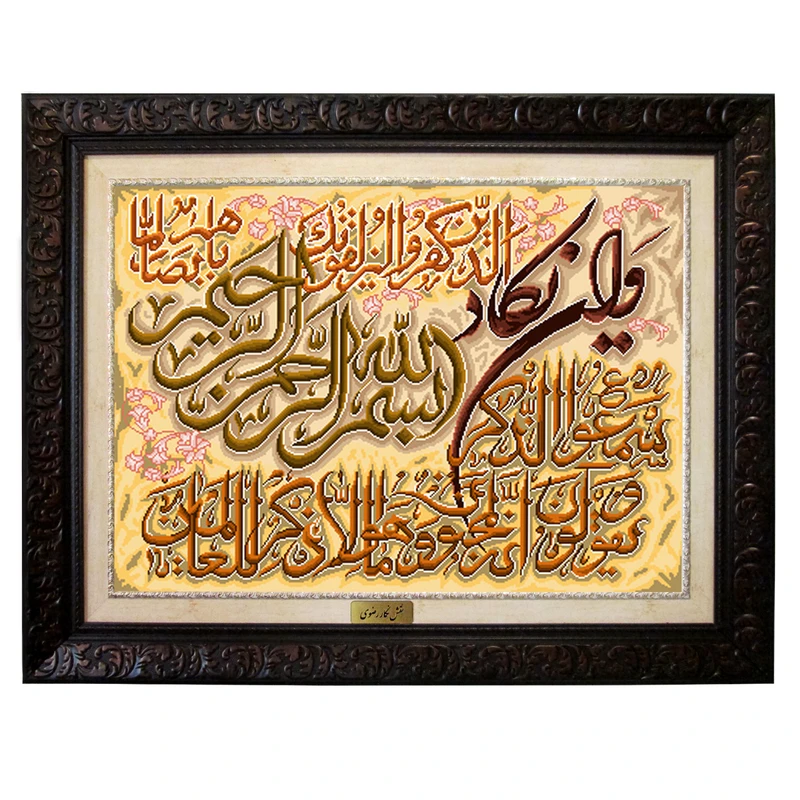 بسم الله الرحمن الرحيم
وإن يكاد
الذين كفروا ليزلقونك
بابصارهم لما
سمعوا الذكر
و يقولون إنه لمجنون و ما هو إلا ذكر للعالمين
نقش نگار رضوی